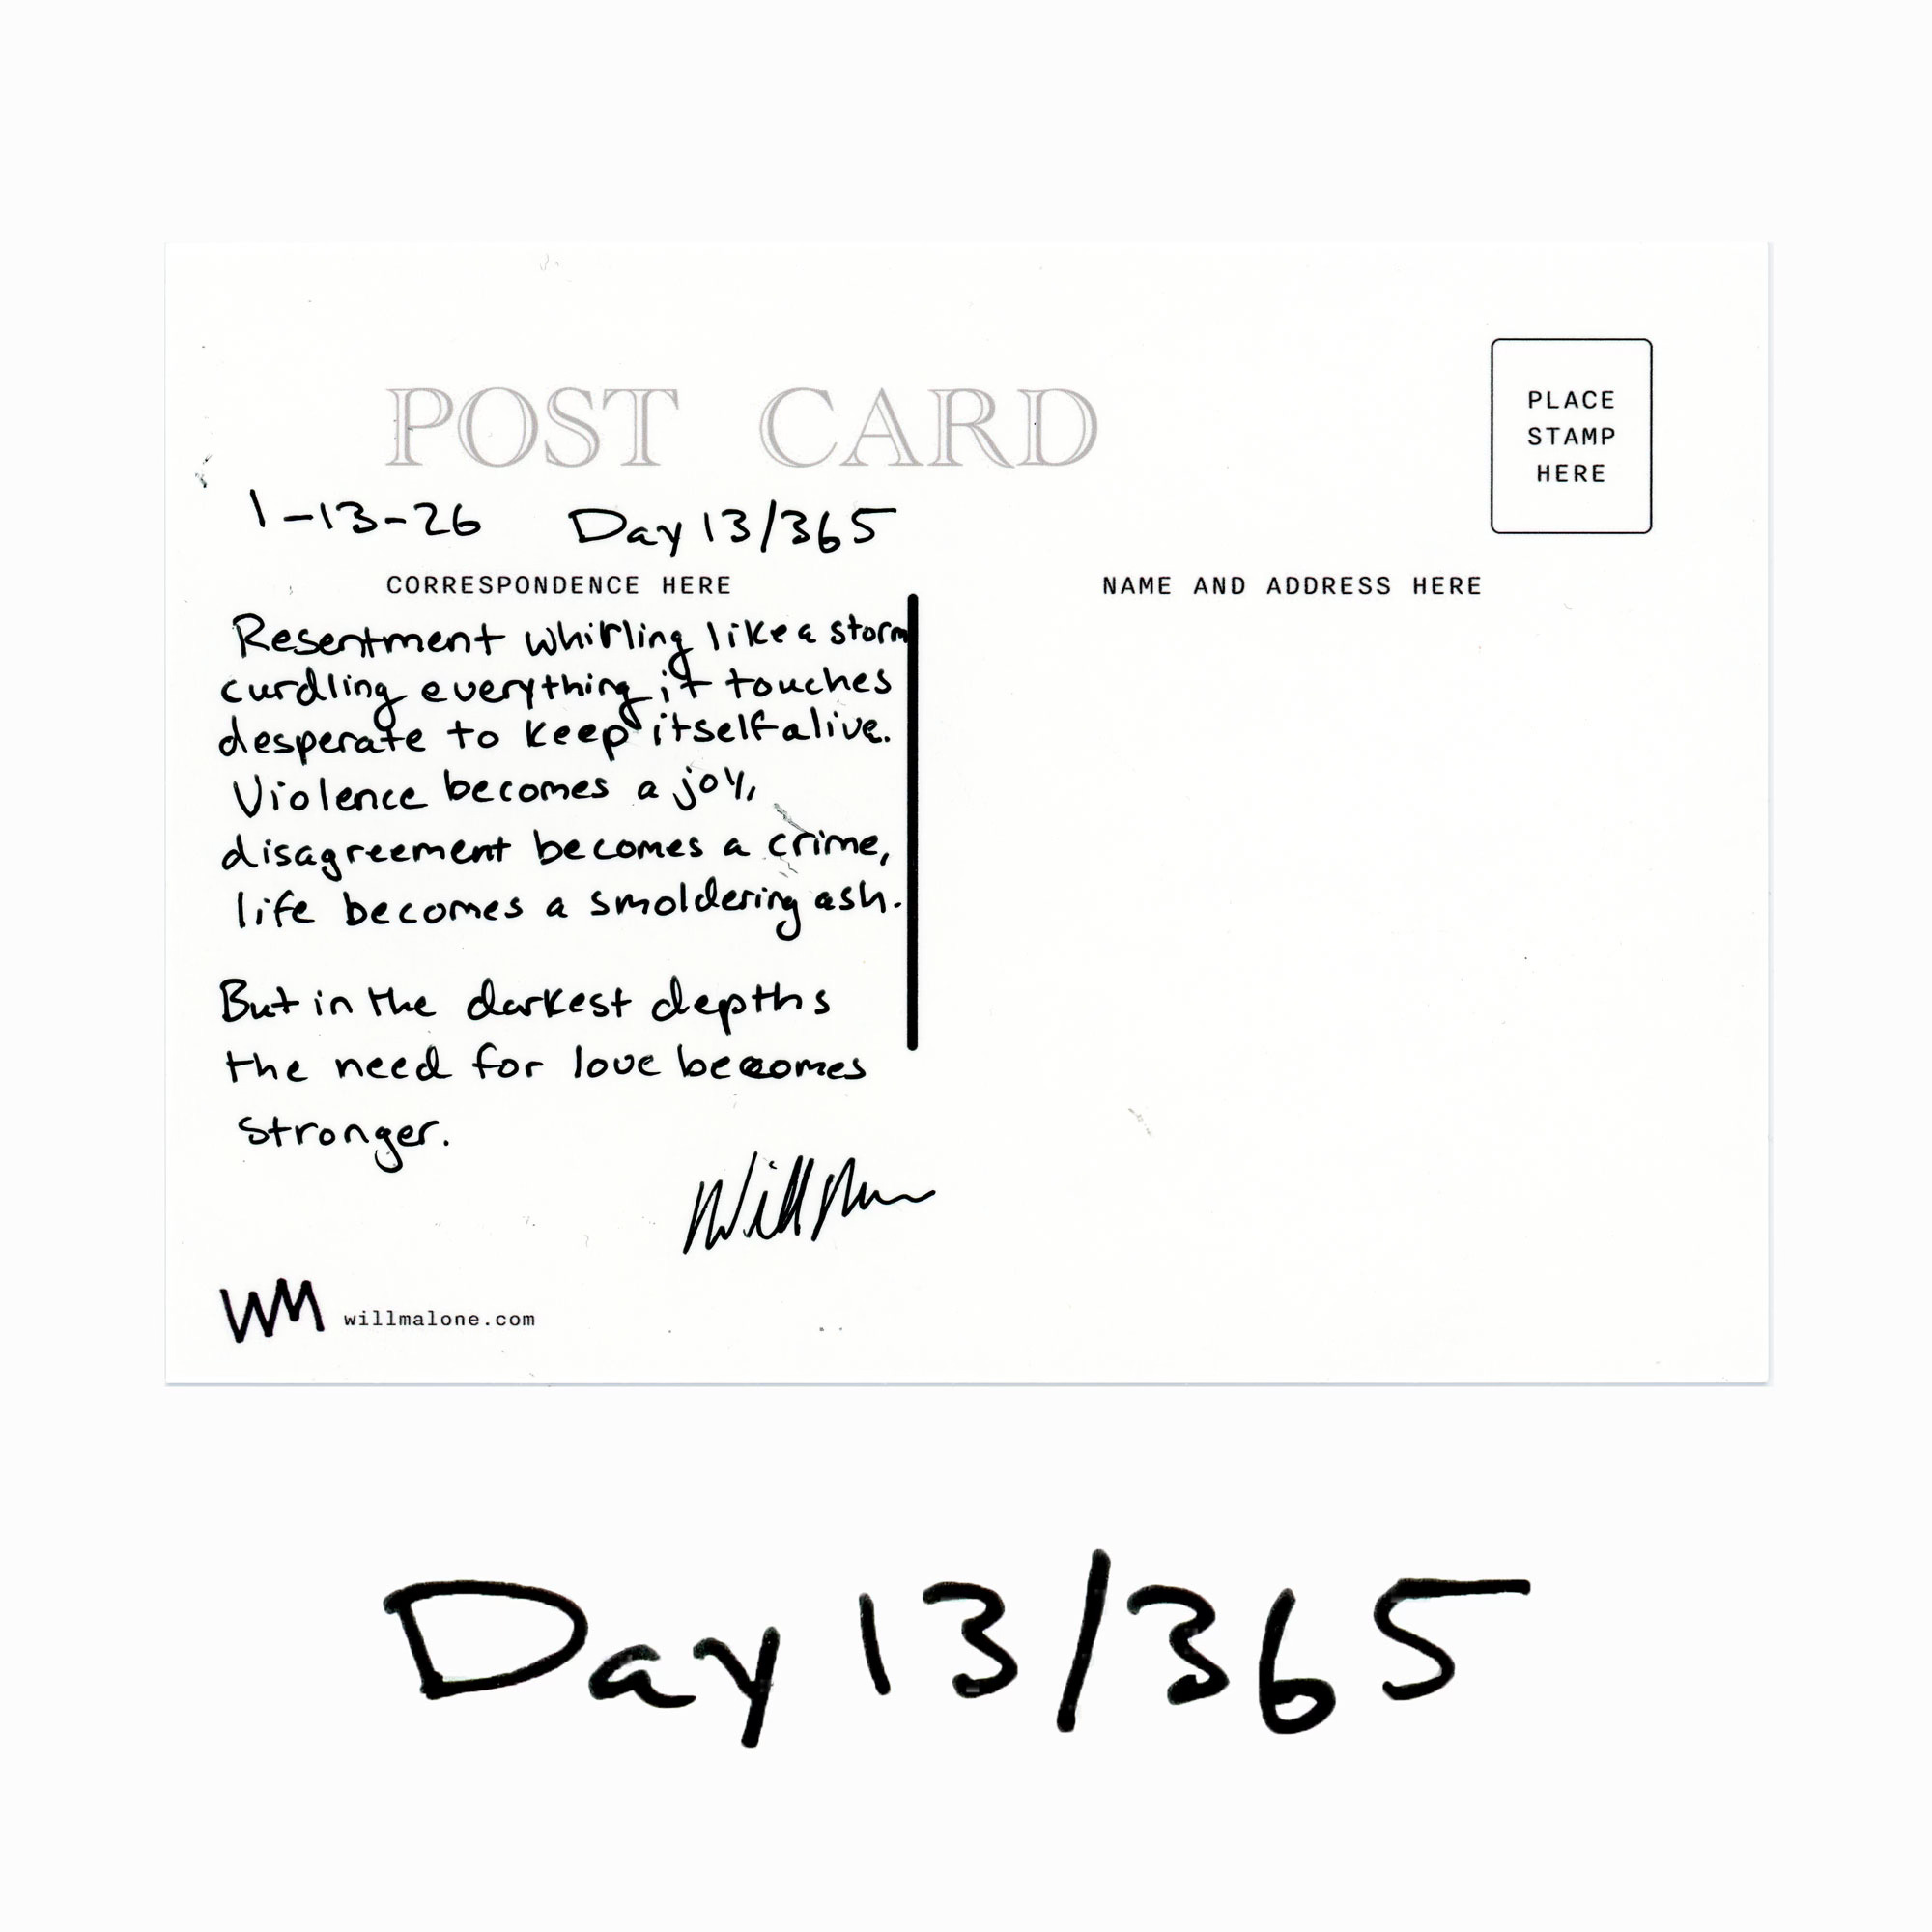 POST CARD
PLACE
STAMP
HERE
1-13-26 Day 13/365
CORRESPONDENCE HERE
NAME AND ADDRESS HERE
Resentment whirling like a storm
curdling everything it touches
desperate to keep itself alive.
Violence becomes a joy,
disagreement becomes a crime,
life becomes a smoldering ash.
But in the darkest depths
the need for love becomes
stronger.
Will M
WM willmalone.com
Day 13/365